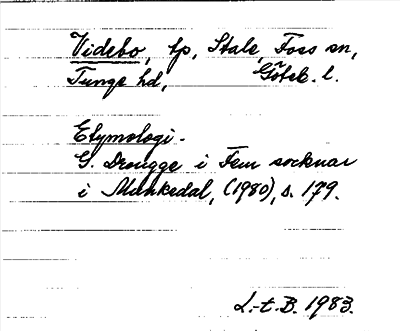 Videbo, tp, Stale, Foss sn,
Tunge hd, Göteb. l.
Etymologi.
G. Drougge i Fem socknar
i Munkedal, (1980), s. 179.
L.-t. B. 1983.